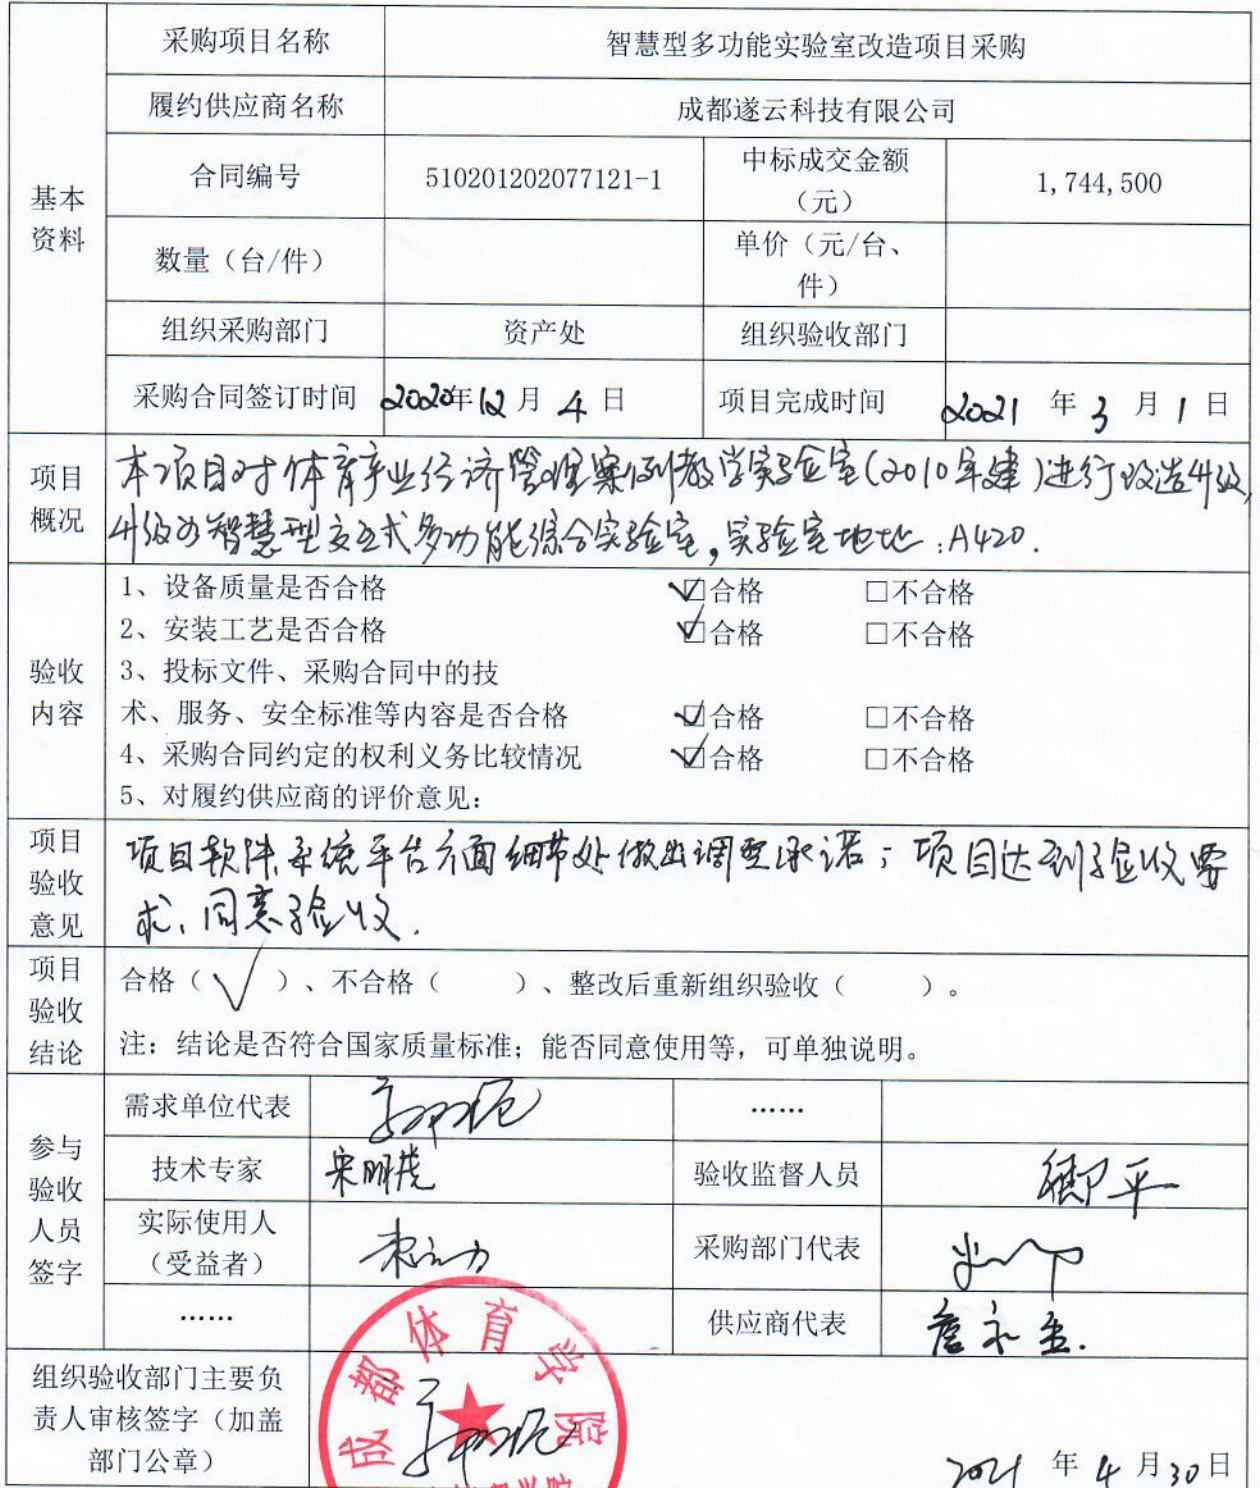 采购项目名称 智慧型多功能实验室改造项目采购
履约供应商名称 成都遂云科技有限公司
合同编号 510201202077121-1 中标成交金额
（元） 1,744,500
基本
资料
数量（台/件） 单价（元/台、
件）
组织采购部门 资产处 组织验收部门
采购合同签订时间 2020年12月4日 项目完成时间 2021年3月1日
项目
概况
本项目对体育产业经济管理案例教学实验室(2010年建)进行改造升级,
升级为智慧型交互式多功能综合实验室,实验室地址:A420.
验收
内容
1、设备质量是否合格 ☑合格 □不合格
2、安装工艺是否合格 ☑合格 □不合格
3、投标文件、采购合同中的技
术、服务、安全标准等内容是否合格 ☑合格 □不合格
4、采购合同约定的权利义务比较情况 ☑合格 □不合格
5、对履约供应商的评价意见：
项目
验收
意见
项目软件系统平台方面细节处做出调整承诺；项目达到验收要
求,同意验收.
项目
验收
结论
合格（√）、不合格（ ）、整改后重新组织验收（ ）。
注：结论是否符合国家质量标准；能否同意使用等，可单独说明。
参与
验收
人员
签字
需求单位代表 ……
技术专家 宋明虎 验收监督人员 平
实际使用人
（受益者） 采购部门代表
…… 供应商代表 詹永
组织验收部门主要负
责人审核签字（加盖
部门公章）
成都体育学院
2021年4月30日